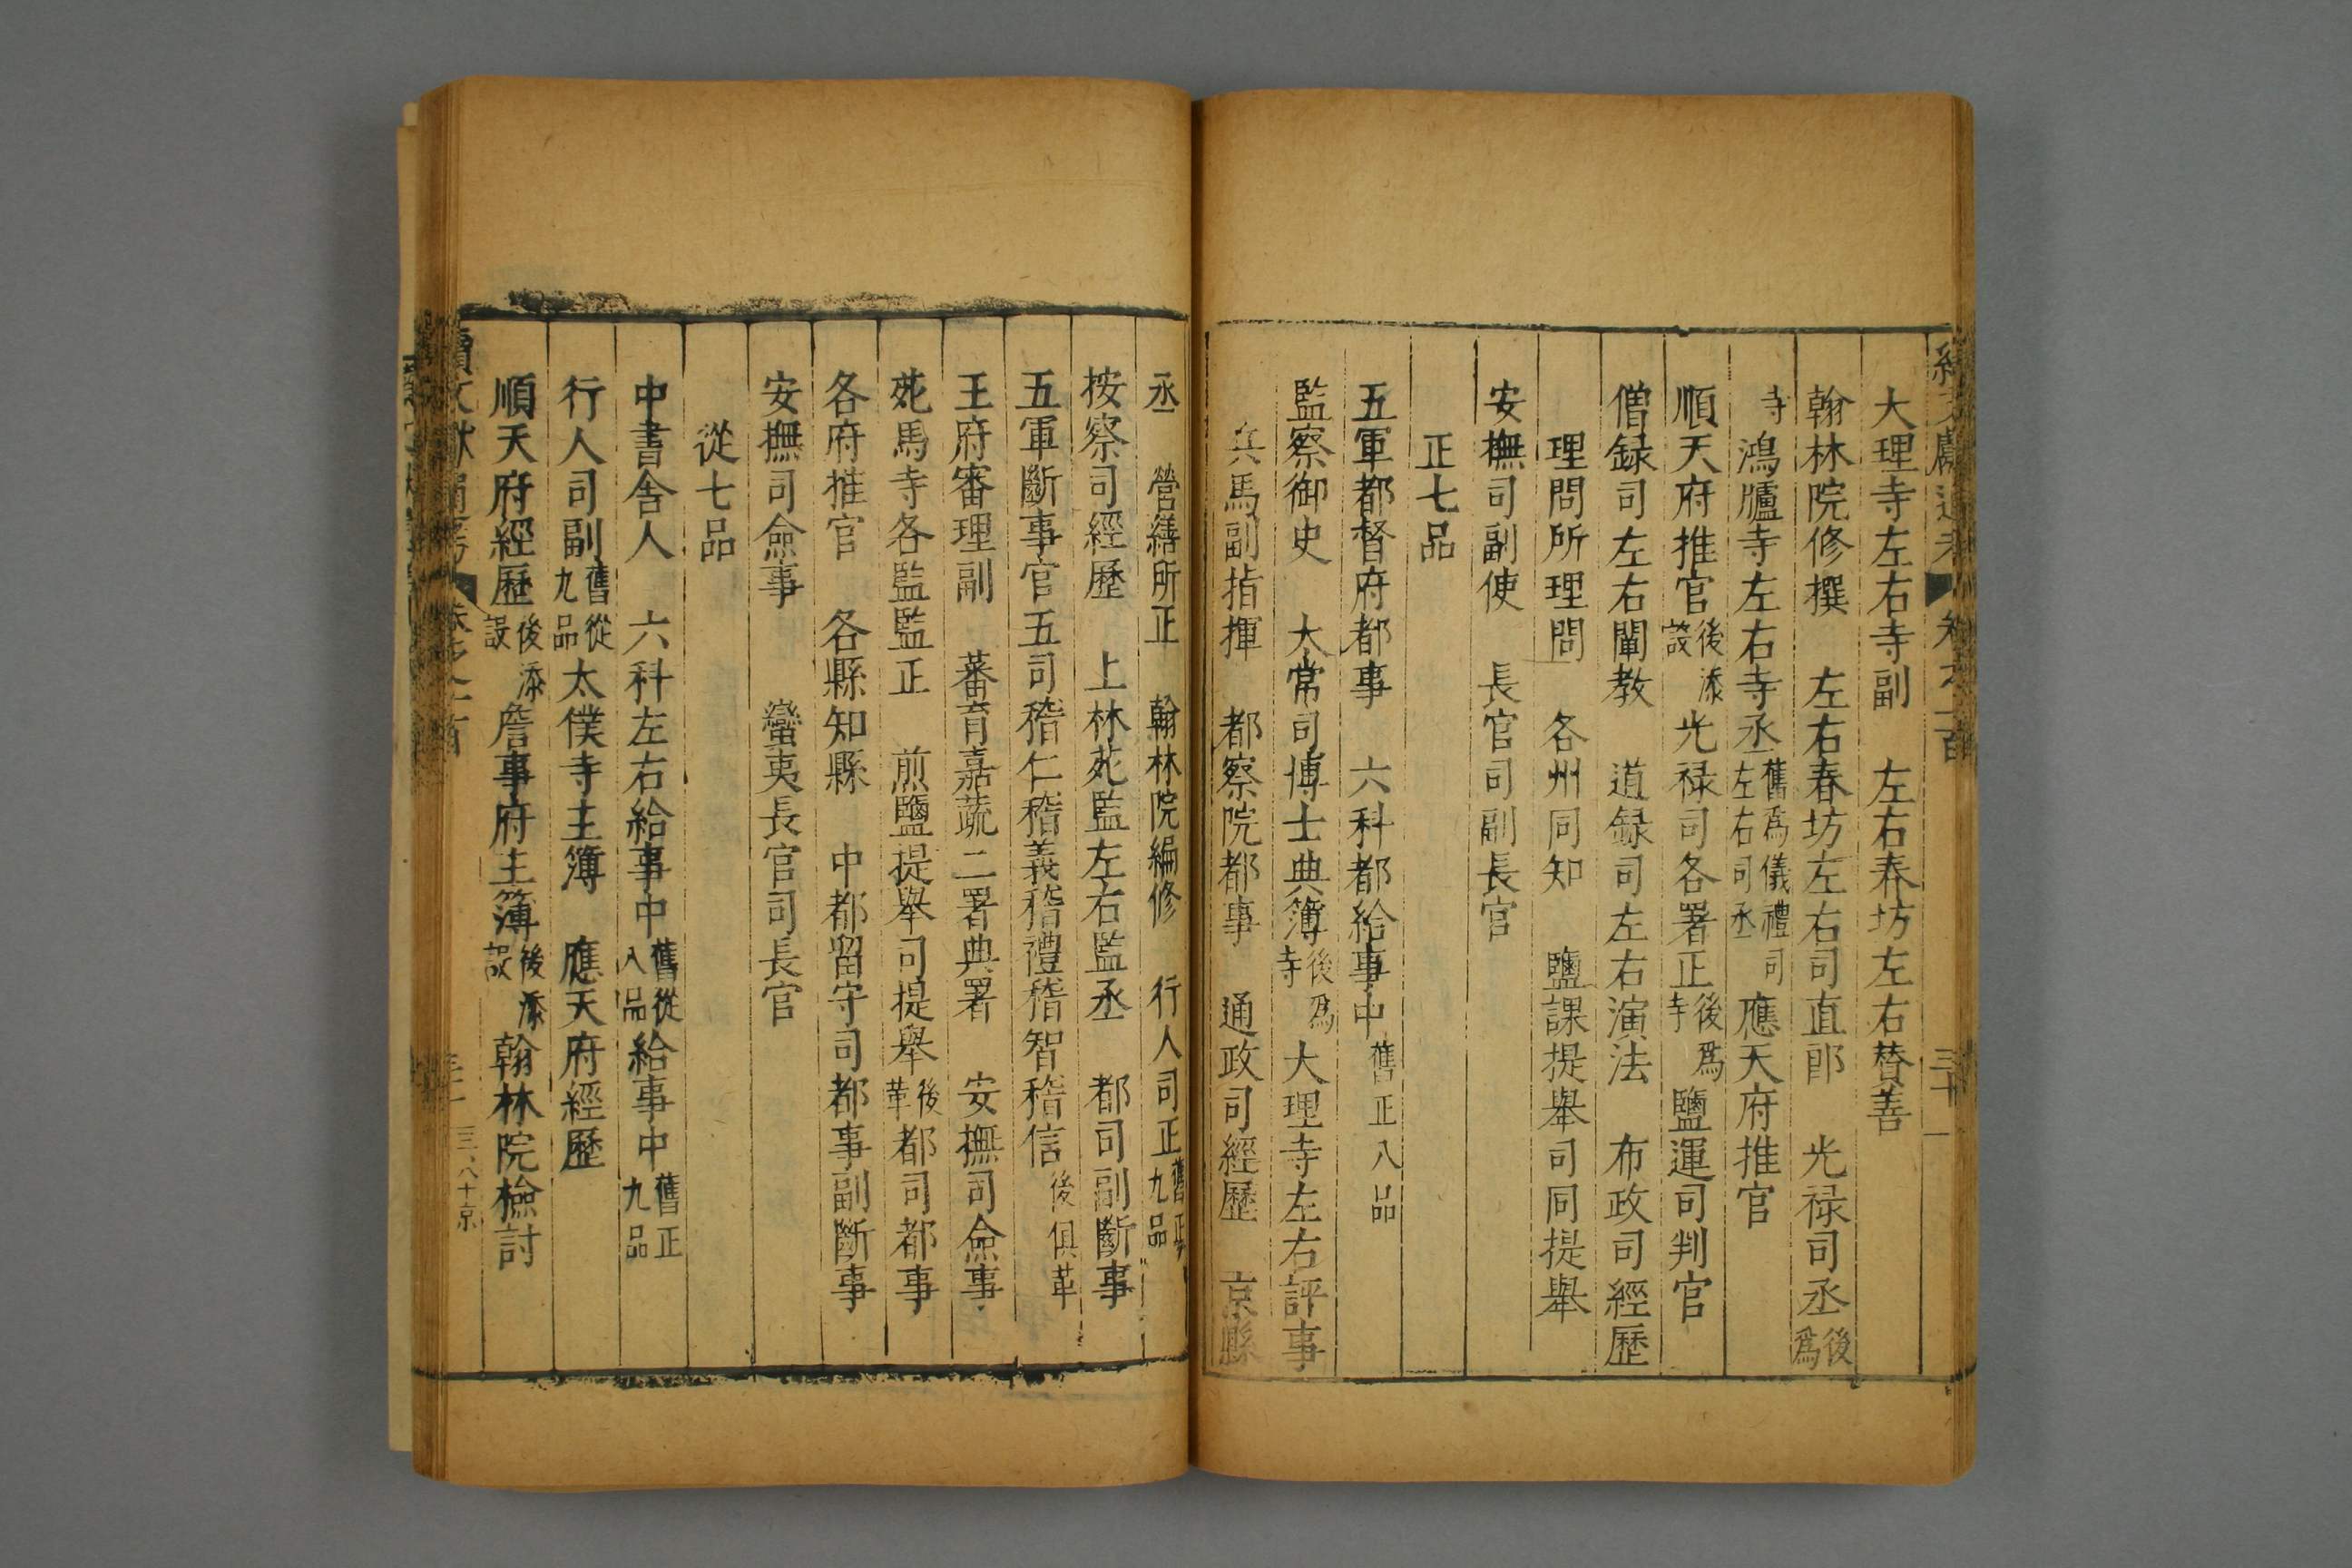 大理寺左右寺副　左右春坊左右賛善
翰林院修撰　左右春坊左右司直郎　光禄司丞後爲
寺鴻臚寺左右寺丞舊爲儀禮司左右司丞應天府推官
順天府推官後添設光禄司各署正後爲寺鹽運司判官
僧録司左右闡教　道録司左右演法　布政司經歷
理問所理問　各州同知　鹽課提舉司同提舉
安撫司副使　長官司副長官
正七品
五軍都督府都事　六科都給事中舊正八品
監察御史　太常司博士典簿後爲寺大理寺左右評事
兵馬副指揮　都察院都事　通政司經歷　京縣
丞　營繕所正　翰林院編修　行人司正舊正九品
按察司經歷　上林苑監左右監丞　都司副斷事
五軍斷事官五司稽仁稽義稽禮稽智稽信後俱革
王府審理副　蕃育嘉蔬二署典署　安撫司僉事
苑馬寺各監監正　煎鹽提舉司提舉後革都司都事
各府推官　各縣知縣　中都留守司都事副斷事
安撫司僉事　蠻夷長官司長官
從七品
中書舍人　六科左右給事中舊從八品給事中舊正九品
行人司副舊從九品太僕寺主簿　應天府經歷
順天府經歷後添設詹事府主簿後添設翰林院檢討